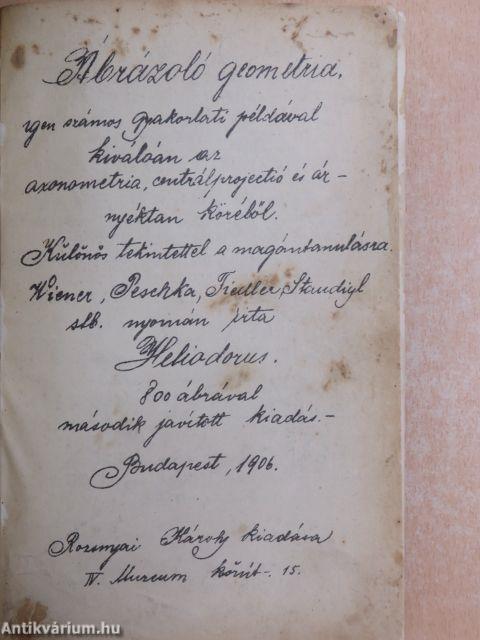 Ábrázoló geometria,
igen számos gyakorlati példával
kiválóan az
axonometria, centrálprojectió és ár-
nyéktan köréből.
Különös tekintettel a magántanulásra.
Wiener, Peschka, Fiedler, Staudigl
stb. nyomán irta
Heliodorus.
800 ábrával
második javított kiadás.-
Budapest, 1906.
Rozsnyai Károly kiadása
IV. Muzeum körút-. 15.
Antikvárium.hu